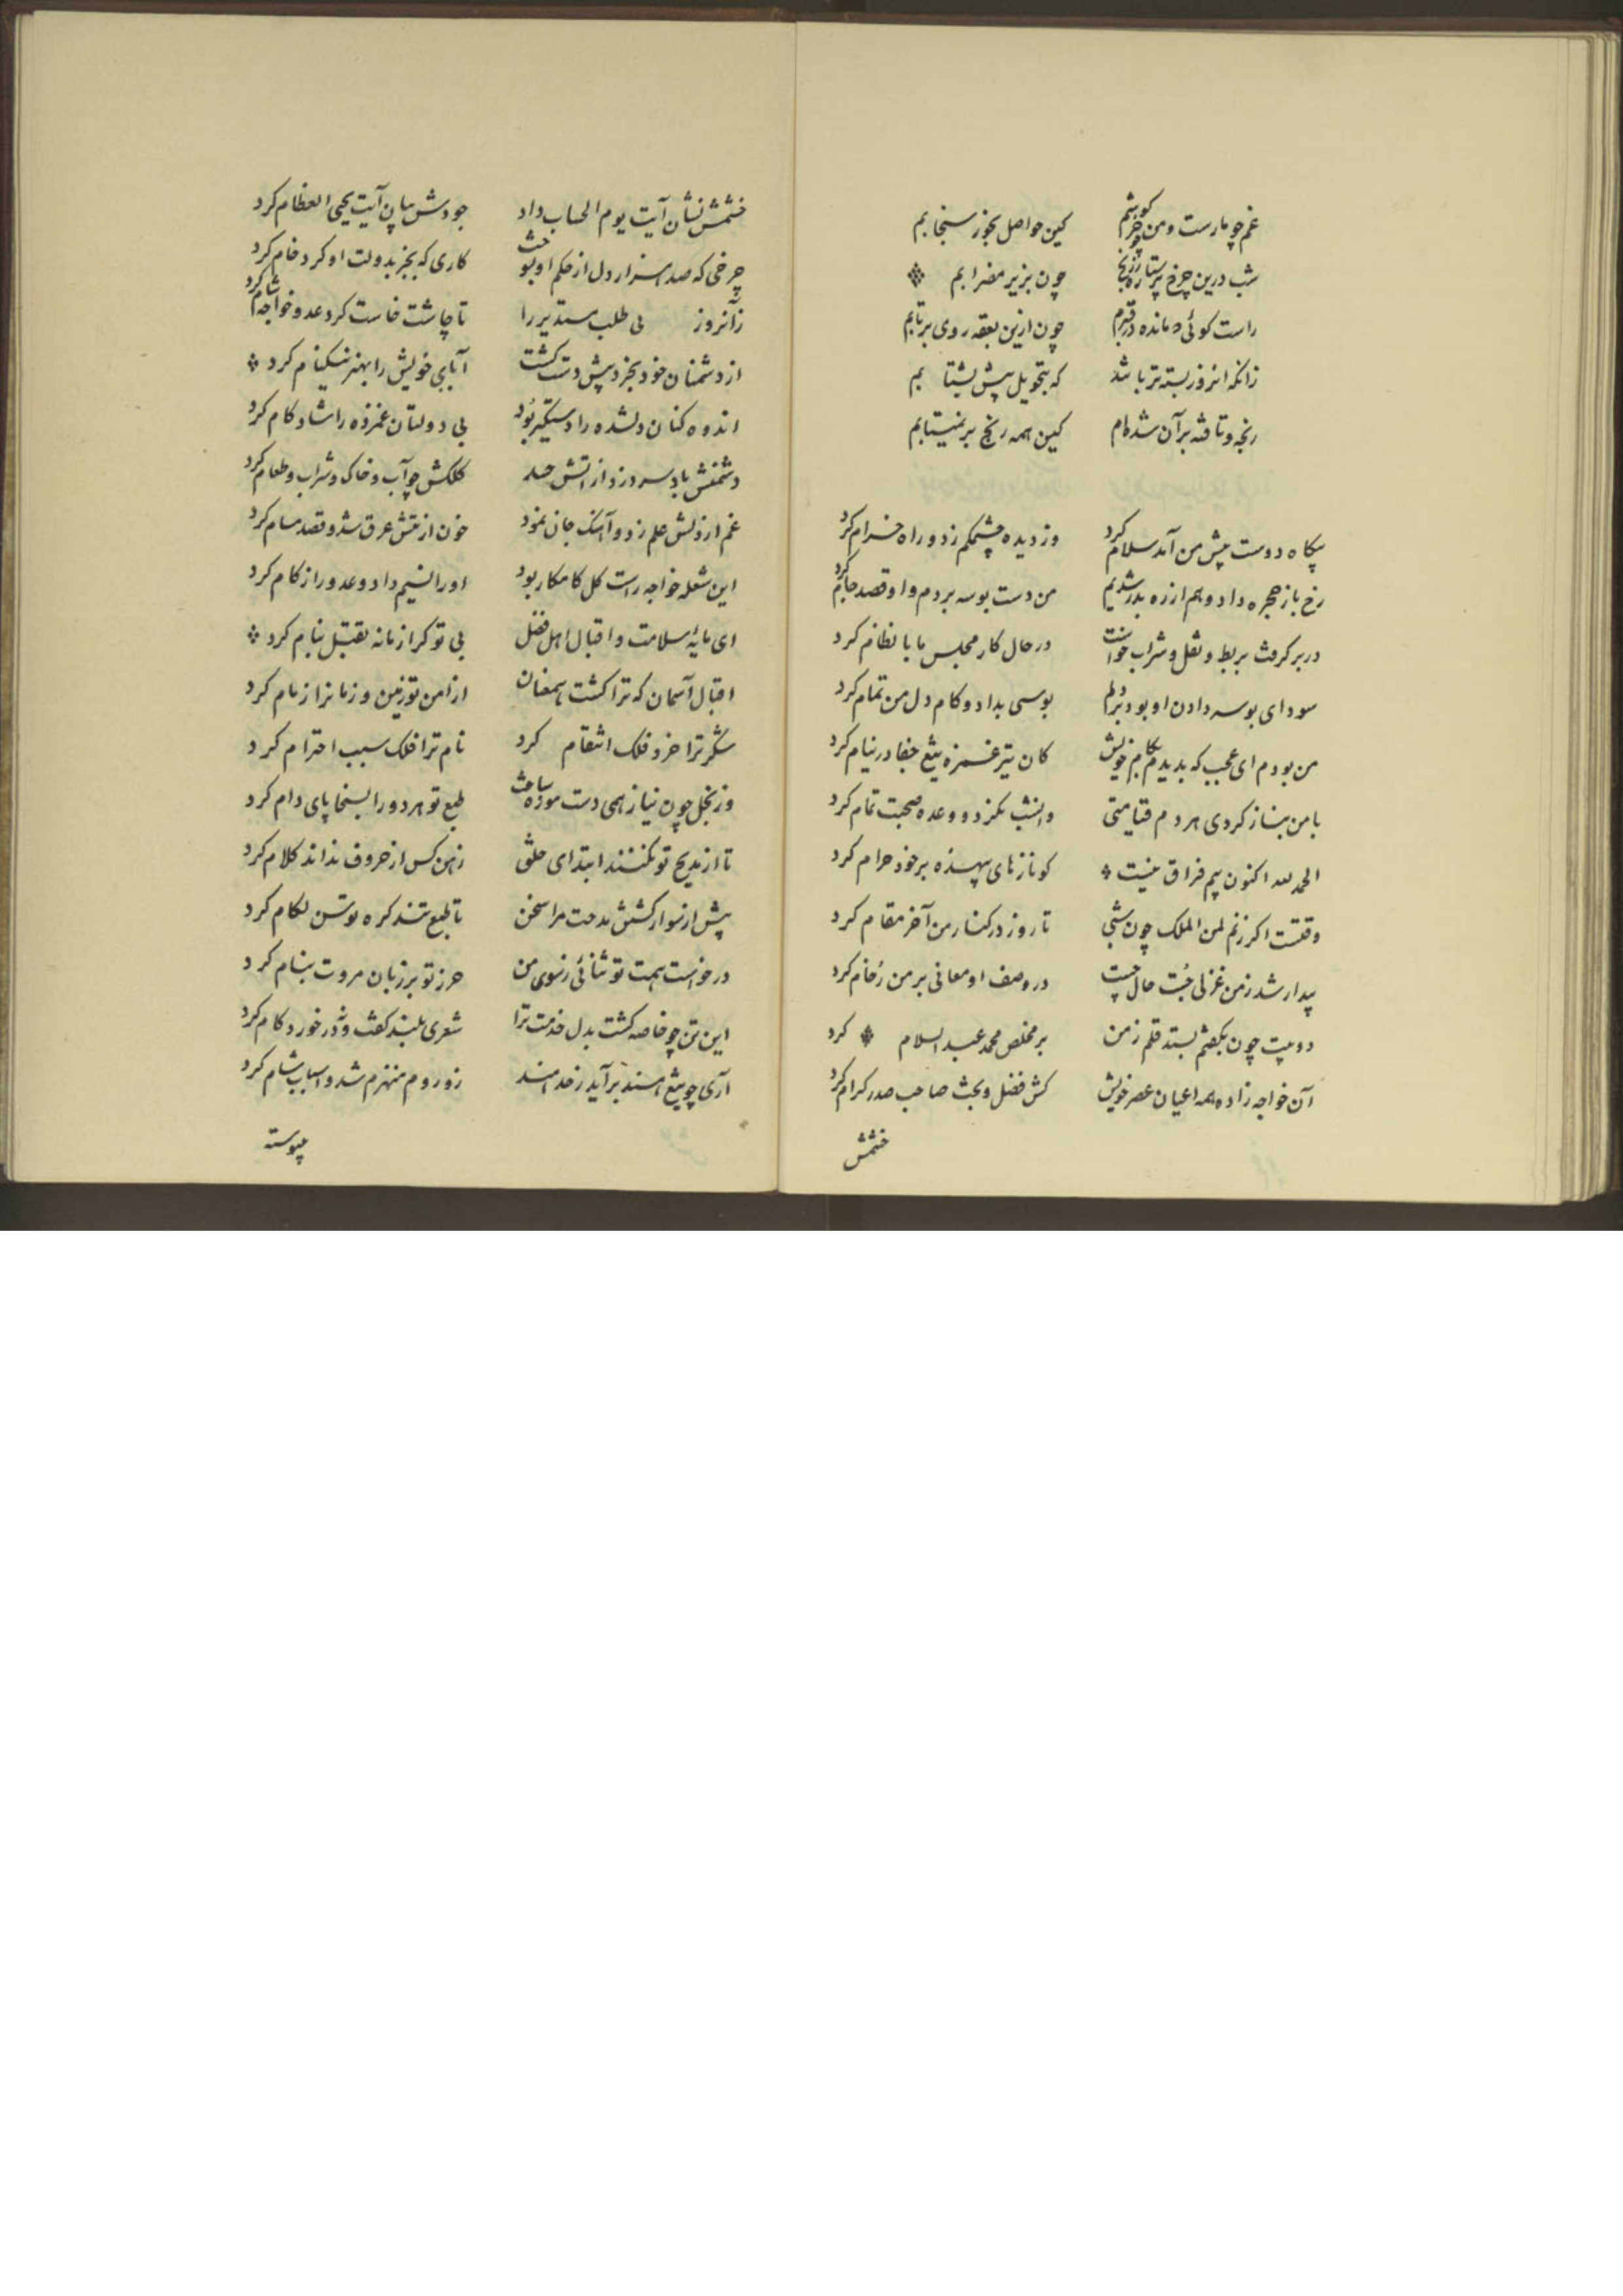 غم چو مارست و من چو خرگوشم کین حواصل بجوز سنجابم
شب درین چرخ پرستاره ز رنج چون بزیر مضرابم
راست کوئی مانده در قیرم چون ازین بقعه روی برتابم
زانکه امروز بسته تر باشد که بتحویل پیش بشتابم
رنجه و تافته بر آن شده‌ام کین همه رنج برنمیتابم
پکاه دوست پیش من آمد سلام کرد وز دیده چشمکم زد و راه خرام کرد
رخ باز حجره داد و بهم از ره بدر شدیم من دست بوسه بردم و او قصد جام کرد
در بر گرفت بربط و نقل و شراب خواست در حال کار مجلس ما با نظام کرد
سودای بوسه دادن او بود در دلم بوسی بداد و کام دل من تمام کرد
من بودم ای عجب که بدیدم بکام خویش کان تیر غمزه تیغ جفا در نیام کرد
با من بناز کردی هر دم قیامتی وامشب نکرد و وعده صحبت تمام کرد
الحمد لله اکنون بیم فراق نیست کو نازهای بیهده بر خود حرام کرد
وقتست اکر زنم لمن الملک چون شبی تا روز در کنار من آخر مقام کرد
بیدار شد ز من غزلی جست حال جست در وصف او معانی بر من زحام کرد
دو بیت چون بکفتم بستد قلم ز من بر مخلص محمد عبد السلام کرد
آن خواجه زاده همه اعیان عصر خویش کش فضل و بحث صاحب صدر کرام کرد
خشمش
خشمش نشان آیت یوم الحساب داد جودش بیان آیت یحیی العظام کرد
چرخی که صد هزار دل از حکم او بسوخت کاری که بجز بدولت او کرد خام کرد
زآنروز بی طلب مستدیر را تا چاشت خاست کرد عدو خواجه شام کرد
از دشمنان خود بخرد پیش دست گشت آبای خویش را بهنر نیکنام کرد
اندوه کنان دلشده را دستگیر بود بی دولتان غمزده را شادکام کرد
دشمنش باد سرد زد از آتش حسد کلکش چو آب و خاک و شراب و طعام کرد
غم از دلش علم زد و آهنگ جان نمود خون از تنش عرق شد و قصد مسام کرد
این شعله خواجه راست کل کامکار بود او را نسیم داد و عدو را زکام کرد
ای مایهٔ سلامت و اقبال اهل فضل بی تو کرا زمانه بقتبل بنام کرد
اقبال آسمان که ترا کشت همعنان از امن تو زمین و زمانرا زمام کرد
شکر ترا خرد فلک انتقام کرد نام ترا فلک سبب احترام کرد
وز بخل چون نیاز همی دست موزه ساخت طبع تو هر دو را بسخا پای دام کرد
تا از مدیح تو نکنند ابتدای خلق زین کس از حروف نداند کلام کرد
پیش از سوار کشتن مدحت مرا سخن تا طبع تند کره توسن لکام کرد
درخواست همت تو ثنائی ز سوی من حرز تو بر زبان مروت بنام کرد
این تن چو خاصه کشت بدل خدمت ترا شعری بلند گفت و نه در خورد کام کرد
آری چو تیغ هند برآید ز حد هند زو روم منهزم شد و اسباب شام کرد
پیوسته